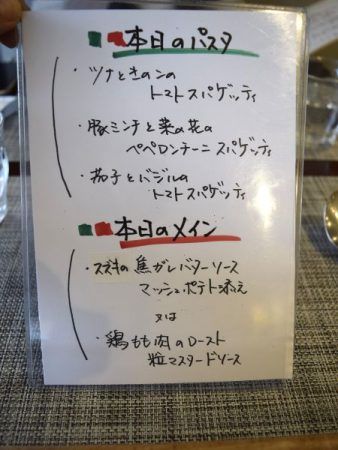 本日のパスタ
・ツナときのこの
トマトスパゲッティ
・豚ミンチと菜の花の
ペペロンチーニ スパゲッティ
・茄子とバジルの
トマトスパゲッティ
本日のメイン
・スズキの焦がしバターソース
マッシュポテト添え
又は
・鶏もも肉のロースト
粒マスタードソース